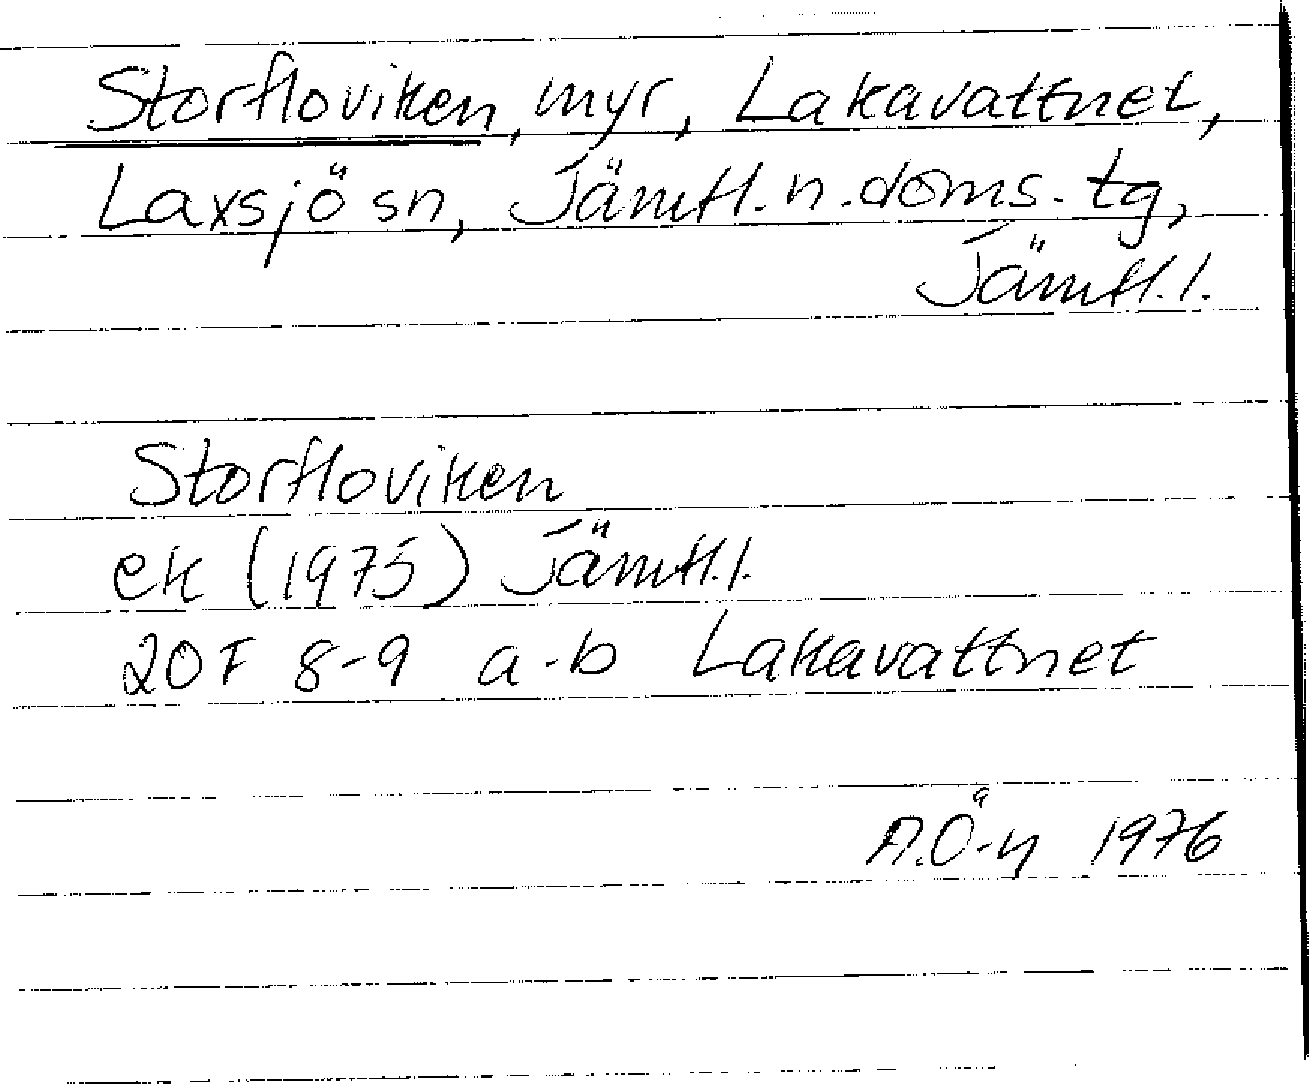 Storfloviken, myr, Lakavattnet,
Laxsjö sn, Jämtl. n. doms. tg,
Jämtl. l.
Storfloviken
ek (1975) Jämtl. l.
20F 8-9 a-b Lakavattnet
A.Ö-y 1976